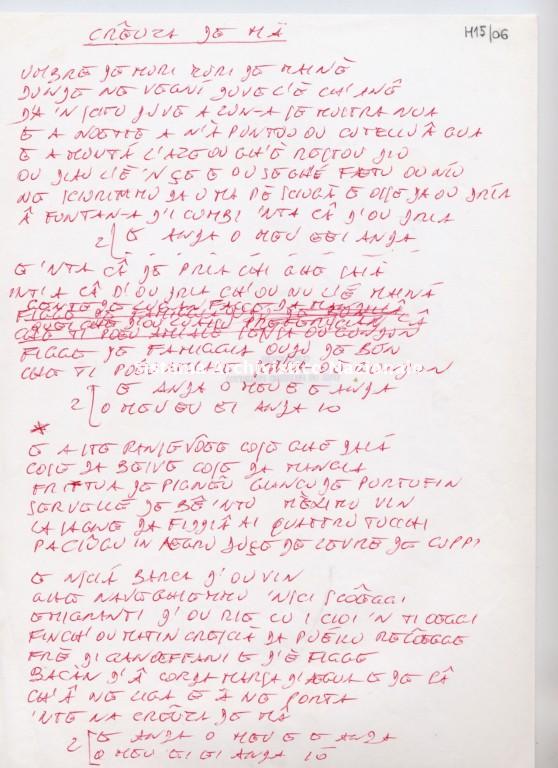 CRÊUZA DE MÄ
M15/06
UMBRE DE MURI MURI DE MAINÈ
DUNDE NE VEGNÎ DUVE L'È CH'ANÊ
DA 'N SCITU DUVE A LÛN-A SE MUSTRA NUA
E A NOETTE A N'À PUNTOU OU CUTELLU Â GUA
E A MUNTÂ L'AZE OU GH'È RESTOU DIU
OU DIAU L'È 'N ÇE E OU SEGHÈ FÆTU OU NIU
NE SCIURTIMMU DA U MA PE SCIUGÂ E OSSE DA OU DRIA
Â FUNTAN-A D'I CUMBI 'NTA CÂ D'OU DRIA
2 E ANDA O MEU E EI ANDA
E 'NTA CÂ DE PRIA CHI GHE SAIÀ
INT'A CÂ D'OU DRIA CH'OU NU L'È MAINÂ
GENTE DE LUGAN FACCE DA MANDILLÂ
FIGGE DE FAMIGGIA OUDÙ DE BON
CHE TI POEU AMIALE SENSA OU GUNDON
E ANDA O MEU E E ANDA
2 O MEU EU EI ANDA IÒ
* E A STE PANSE VÊUE COSE GHE DAIÀ
COSE DA BEIVE COSE DA MANGIÂ
FRITTUA DE PIGNEU GIANCU DE PORTUFIN
SERVELLE DE BÆ 'NTU MÊXIMU VIN
LASAGNE DA FIDDIÂ AI QUATTRU TUCCHI
PACIÛGU IN AEGRU DUÇE DE LEVRE DE CUPPI
E N'SCIÂ BARCA D'OU VIN
GHE NAVEGHIEMMU 'NSCI SCÔEGGI
EMIGRANTI D'OU RIE CU I CIOI 'N TI OEGGI
FINCH' OU MATIN CRESCIÀ DA PUEILU RECÔEGGE
FRÈ DI GANOEFFANI E D'È FIGGE
BACÀN D'Â CORDA MARSA D'AEGUA E DE SÂ
CH'Â NE LIGA E Â NE PORTA
'NTE NA CRÊUZA DE MÄ
E ANDA O MEU E E ANDA
2 O MEU EI EI ANDA IÒ